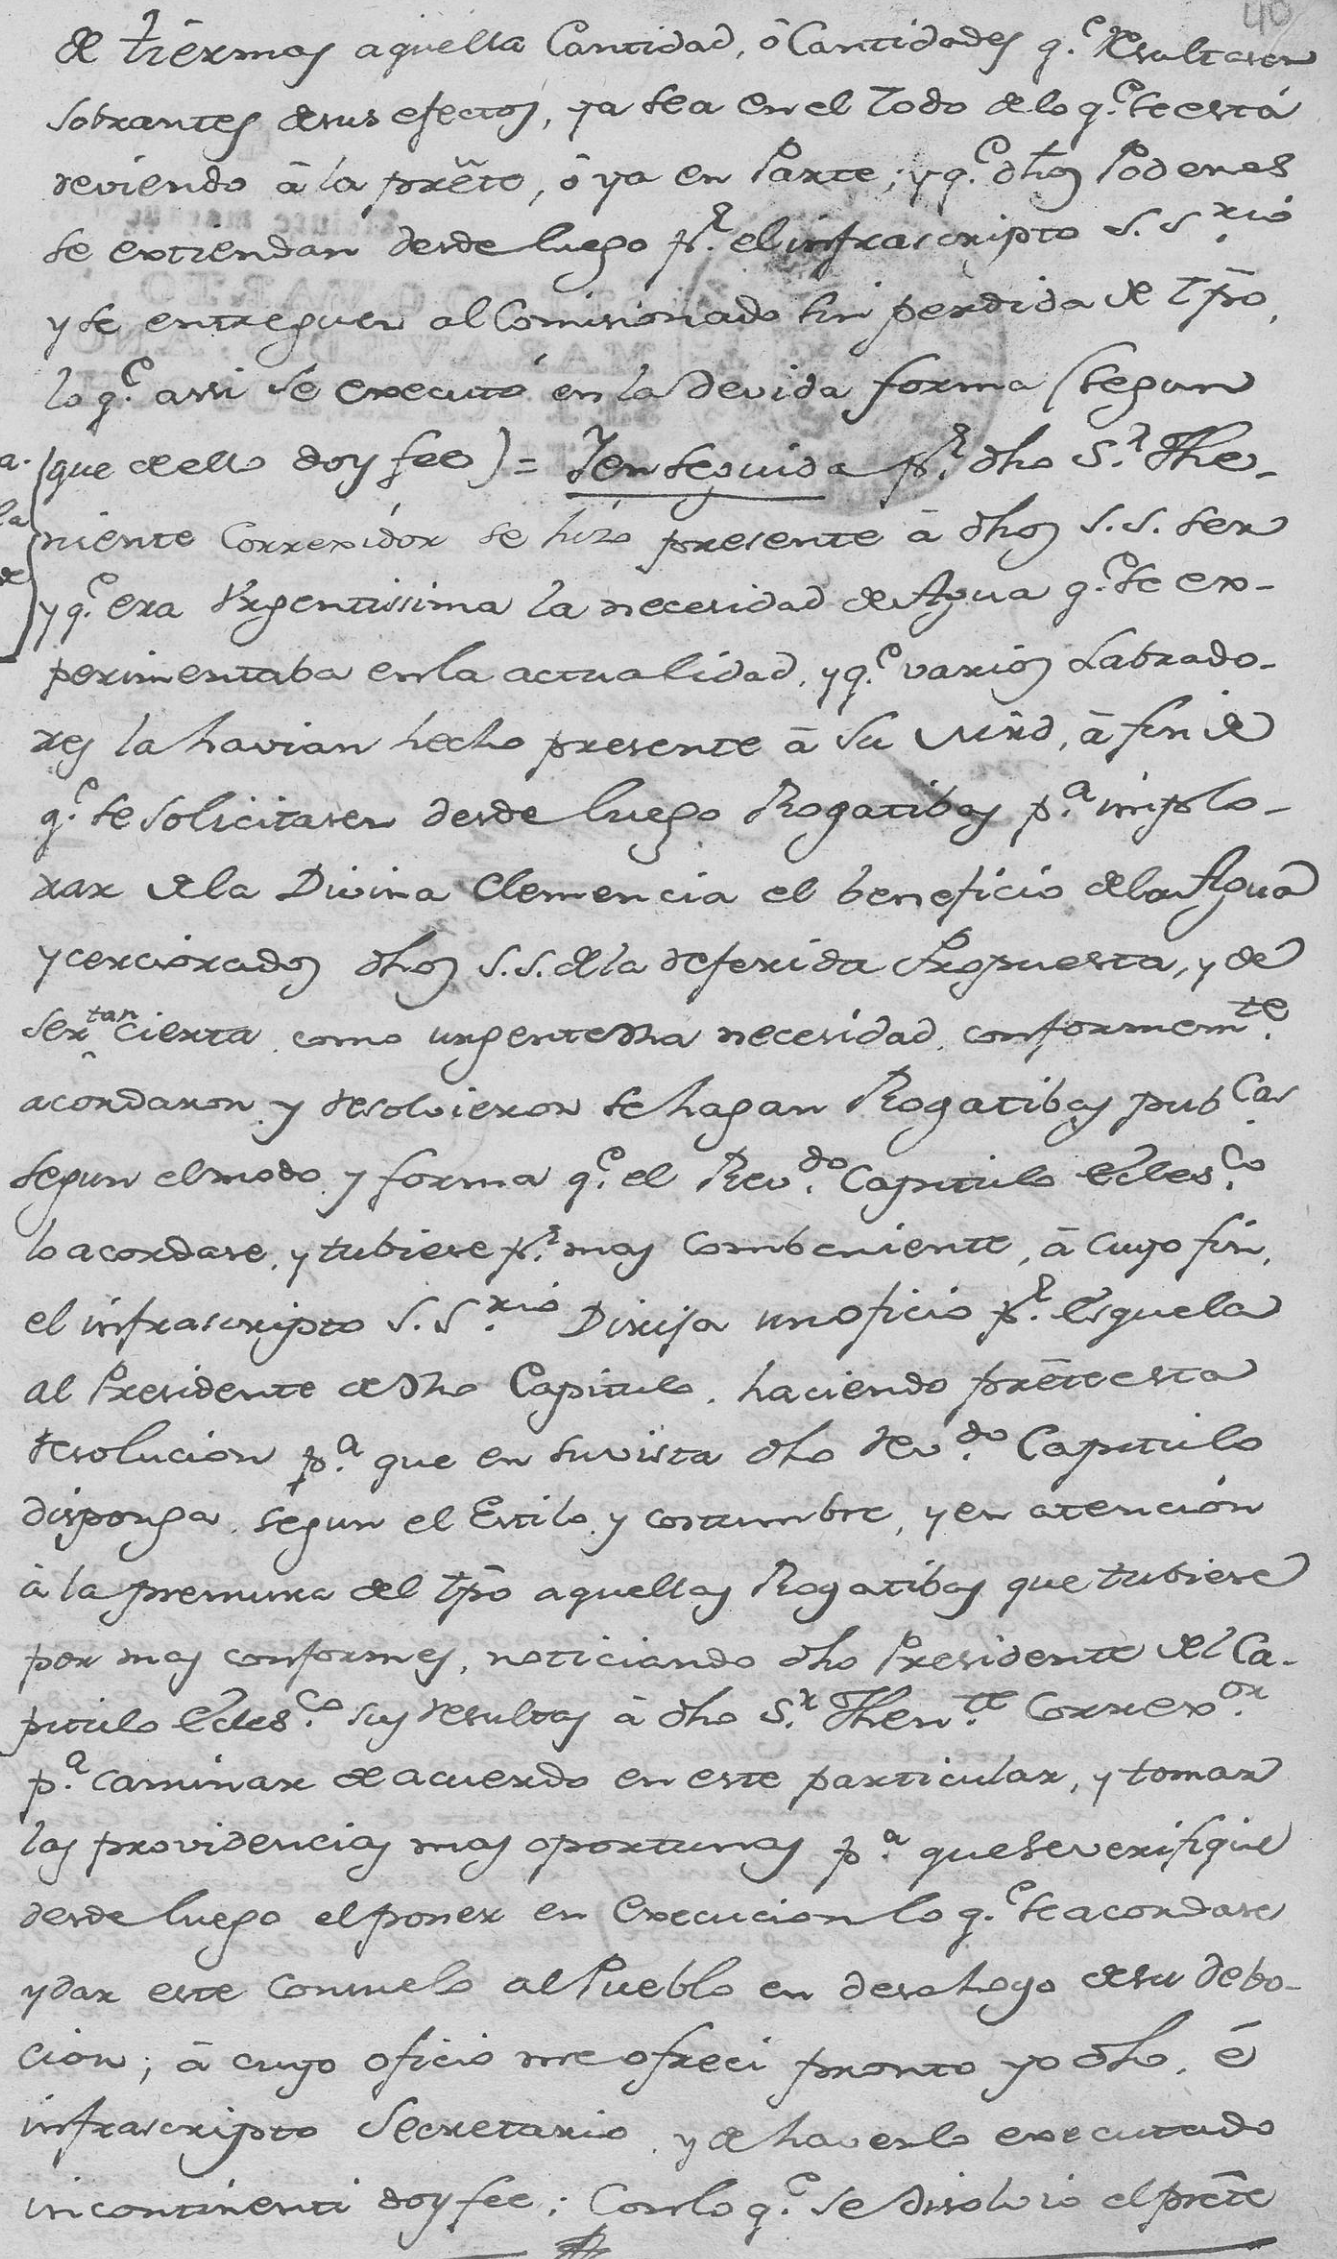 40
de tiermas aquella Cantidad, ô Cantidades q.e resultasen
sobrantes desus efectos, ya sea en el todo delo q.e se está
deviendo â la preste, ô ya en Parte; y q.e dhos Poderes
se extiendan desde luego p.r el infrascripto S. S.rio
y se entreguen al Comisionado sin perdida de tpõ,
lo q.e assi se executó en la devida forma (segun
(que de ello doy fee) = Yen seguida p.r dho S.r The-
niente Correxidor se hizo presente â dhos S.S. ser
y q.e era Urgentissima la necesidad de Agua q.e se ex-
perimentaba enla actualidad, y q.e varios Labrado-
res la havian hecho presente â su Mrd, â fin de
q.e se solicitasen desde luego Rogatibas p.a implo-
rar dela Divina Clemencia el beneficio dela Agua
y cerciorados dhos S.S. dela referida Propuesta, y de
ser tan cierta como urgente dha necesidad conformem.te
acordaron y resolvieron se hagan Rogatibas pub.cas
segun el modo y forma q.e el Rev.do Capitulo Ecles.co
lo acordase, y tubiere p.r mas combeniente, â cuyo fin,
el infrascripto S. S.rio Dirija un oficio p.r Esquela
al Presidente de dho Capitulo, haciendo prête esta
resolucion p.a que en su vista dho rev.do Capitulo
disponga segun el Estilo y costumbre, y en atención
â la premura del tpõ aquellas Rogatibas que tubiere
por mas conformes, noticiando dho Presidente del Ca-
pitulo Ecles.co sus resultas â dho S.r Then.te Correx.or
p.a caminar de acuerdo en este particular, y tomar
las providencias mas oportunas p.a que se verifique
desde luego el poner en execucion lo q.e se acordase
y dar este consuelo al Pueblo en desahogo de su debo-
cion; â cuyo oficio me ofreci pronto yo dho, é
infrascripto Secretario y de haverlo executado
incontinenti doy fee; Con lo q.e se disolvio el prête